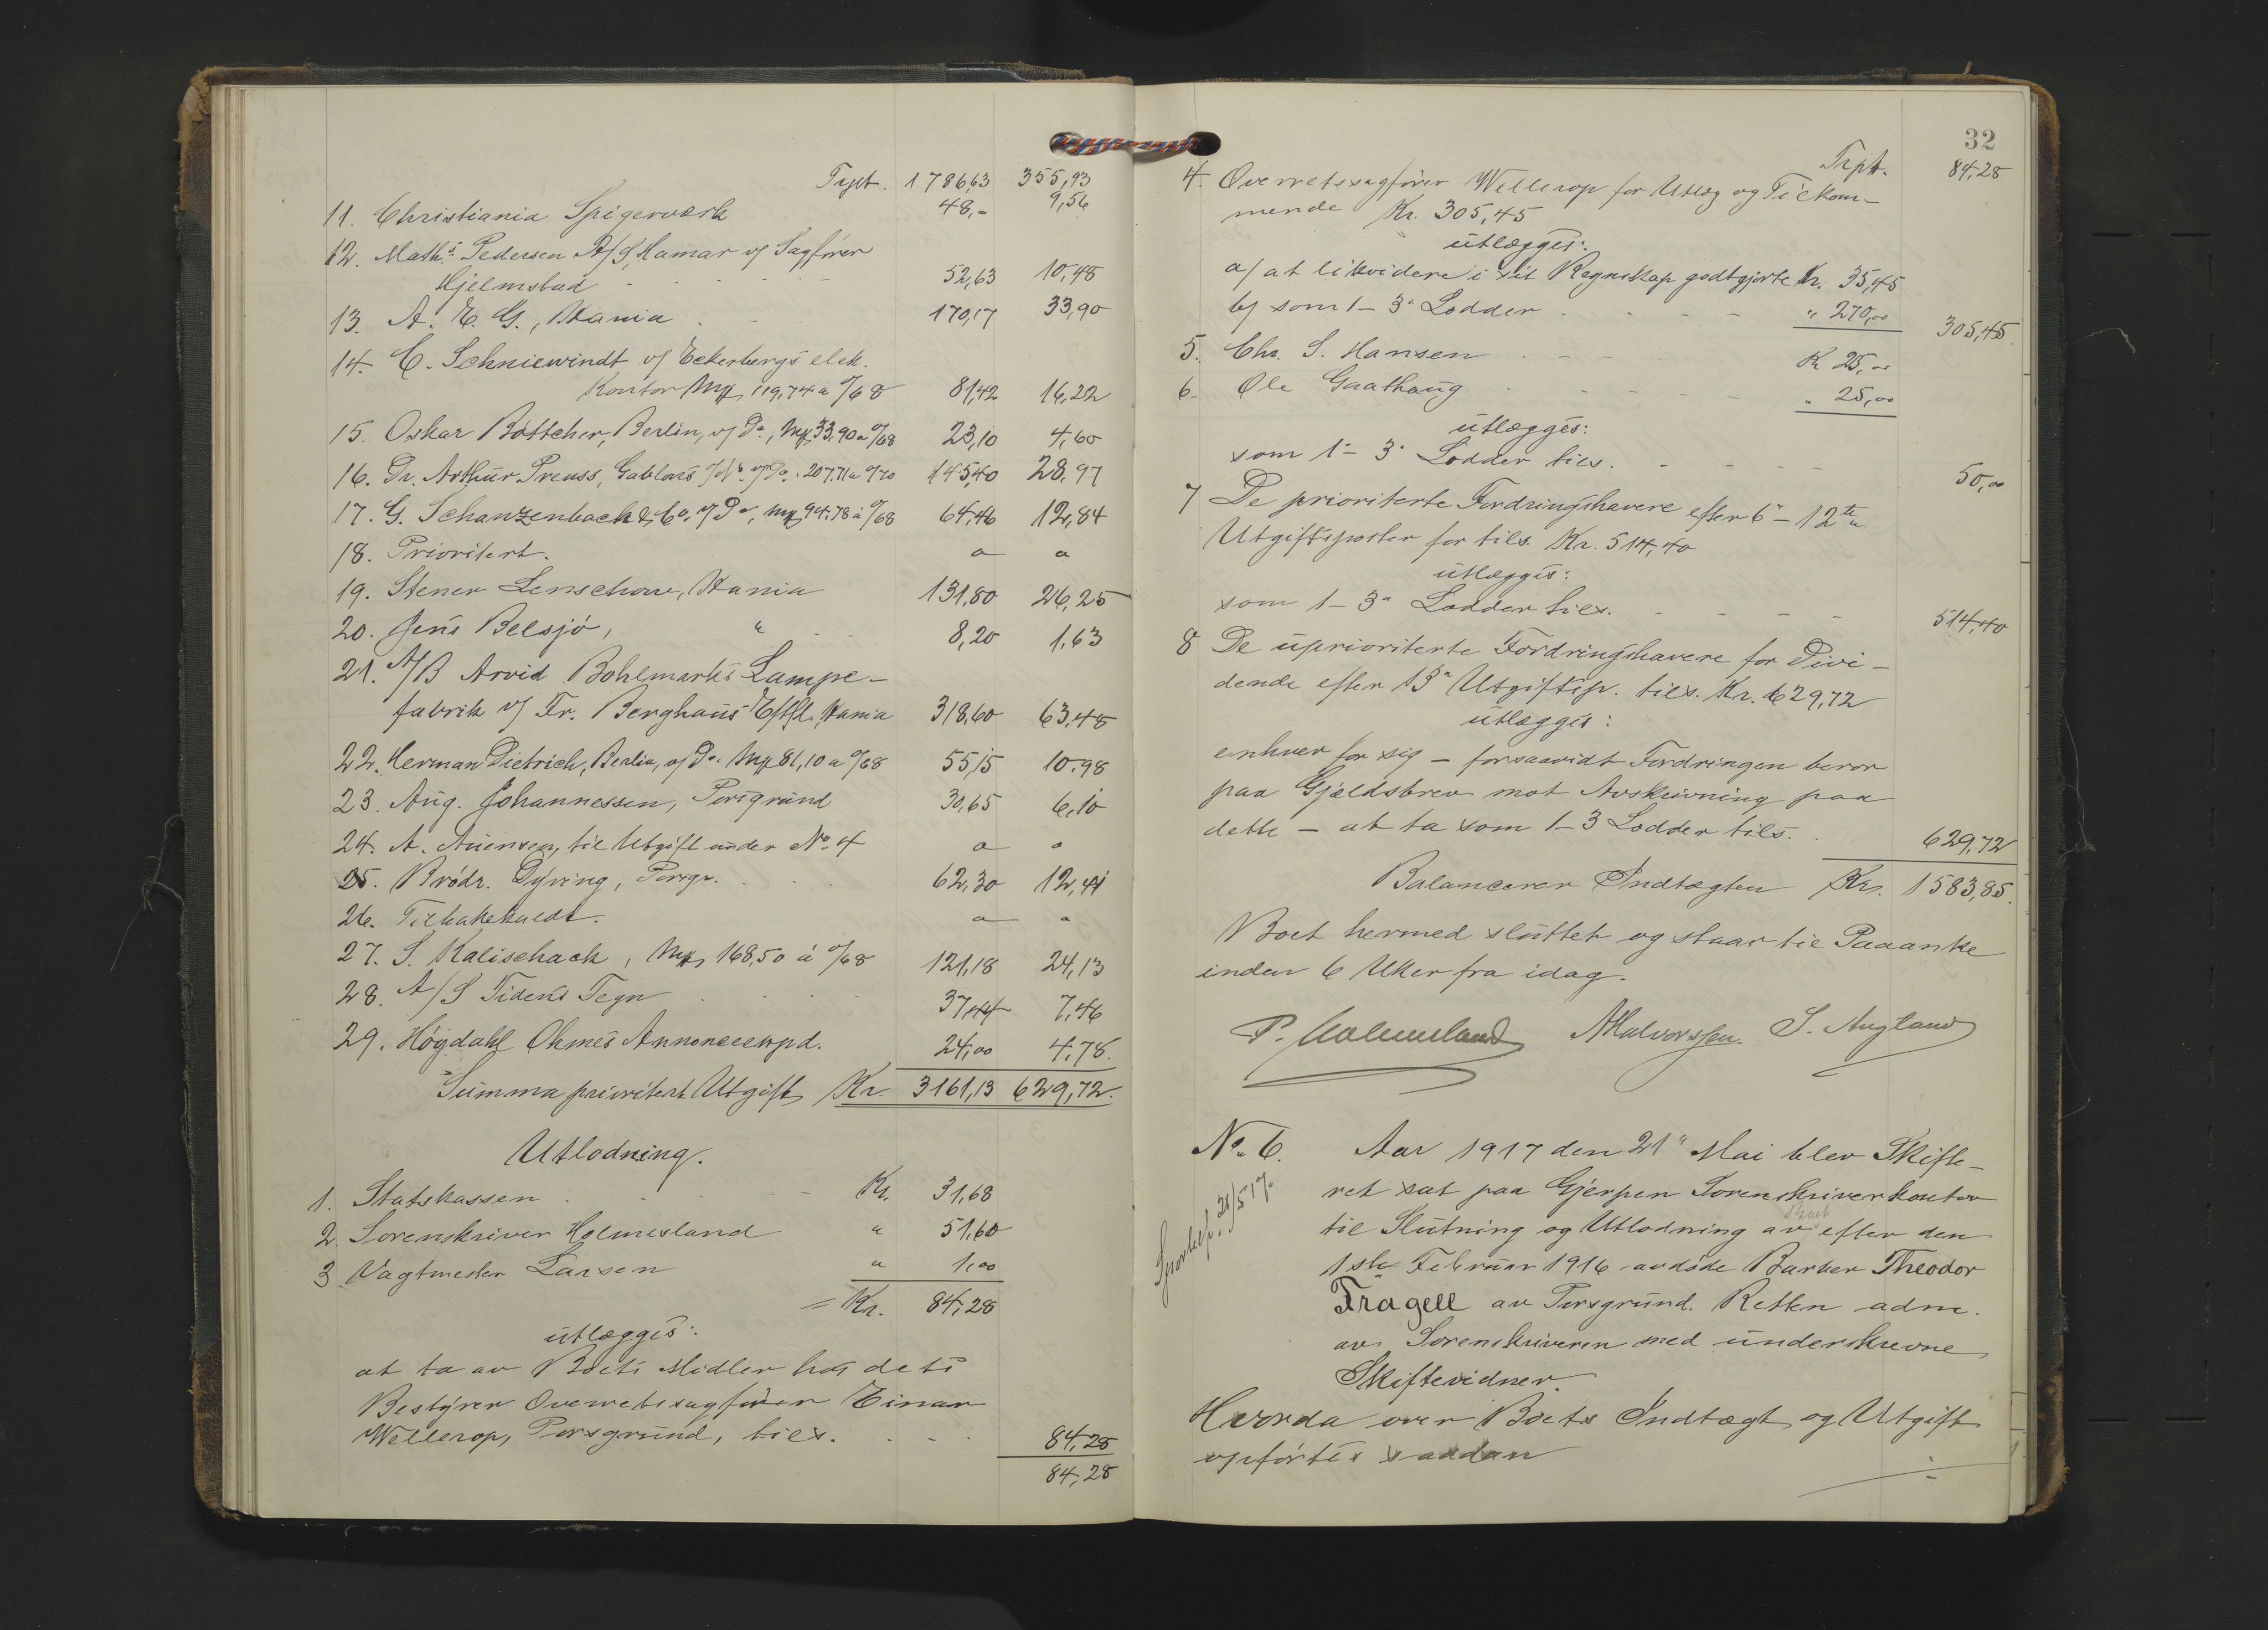 Trpt. 1786,63 355,93
11. Christiania Spigerverk 48,- 9,56
12. Math.s Pedersen A/S, Hamar v/ Sagfører
Hjelmstad 52,63 10,48
13. A. E. G., Kania 170,17 33,90
14. C. Schniewindt v/ Eckerbergs elek.
Kontor Mk 119,74 a 0/68 81,42 16,22
15. Oskar Böttcher, Berlin, v/ Do., Mk 33,90 a 0/68 23,10 4,60
16. Gr. Arthur Preuss, Gablons v/ Do. 207.71 a 0/70 145,40 28,97
17. G. Schanzenbach & Co. v/ Do, Mk 94,78 à 0/68 64,46 12,84
18. Prioritert. " "
19. Stener Lenschow, Kania 131,80 26,25
20. Jens Belsjö, " 8,20 1,63
21. A/B Arvid Bohlmarks Lampe-
fabrik v/ Fr. Berghaus Eftfl. Kania 318,60 63,48
22. Herman Dietrich, Berlin, v/ Do. Mk 81,10 a 0/68 55,15 10,98
23. Aug. Johannessen, Porsgrund 30,65 6,10
24. A. Auensen, til Utgift under No. 4 " "
25. Brödr. Dyring, Porsgr. 62,30 12,41
26. Tilbakekaldt. " "
27. S. Kalischack, Mk 168,50 á 0/68 121,18 24,13
28. A/S Tidens Tegn 37,44 7,46
29. Høgdahl Ohmes Annonceexpd. 24,00 4,78.
Summa prioritert Utgift Kr. 3161,13 629,72.
Utlodning.
1. Statskassen Kr. 31,68
2. Sorenskriver Holmesland " 51,60
3 Vagtmester Larsen " 1,00
= Kr. 84,28
utlægges:
at ta av Boets Midler hos dets
Bestyrer Overretssagfører Einar
Wellerop, Porsgrund, tils. 84,28
84,28
32
Trpt. 84,28
4. Overretssagfører Wellerop for Utlæg og Tilkom-
mende Kr. 305,45
utlægges:
a/ at likvidere i sit Regnskap godtgjorte Kr. 35,45
b/ som 1-3" Lodder " 270,00 305,45.
5. Chr. S. Hansen Kr 25,00
6. Ole Gaathaug " 25,00
utlægges:
som 1-3" Lodder tils. 50,00
7 De prioriterte Fordringshavere efter 6"-12te
Utgiftsposter for tils. Kr. 514,40
utlægges:
som 1-3" Lodder tils. 514,40
8 De uprioriterte Fordringshavere for Divi-
dende efter 13" Utgiftsp. tils. Kr. 629,72
utlægges:
enhver for sig - forsaavidt Fordringen beror
paa Gjældsbrev mot Avskrivning paa
dette - at ta som 1-3 Lodder tils. 629,72
Balancerer Indtægten Kr. 1583,85.
Boet hermed sluttet og staar til Paaanke
inden 6 Uker fra idag.
P. Holmesland AHalvorssen. S. Augland
No. 6. Aar 1917 den 21" Mai blev Skifte-
ret sat paa Gjerpen Sorenskriverkontor
til Slutning og Utlodning av Boet efter den
1ste Februar 1916 avdöde Barber Theodor
Fragell av Porsgrund. Retten adm.
av Sorenskriveren med underskrevne
Skiftevidner.
Hvorda over Boets Indtægt og Utgift
opførtes saadan